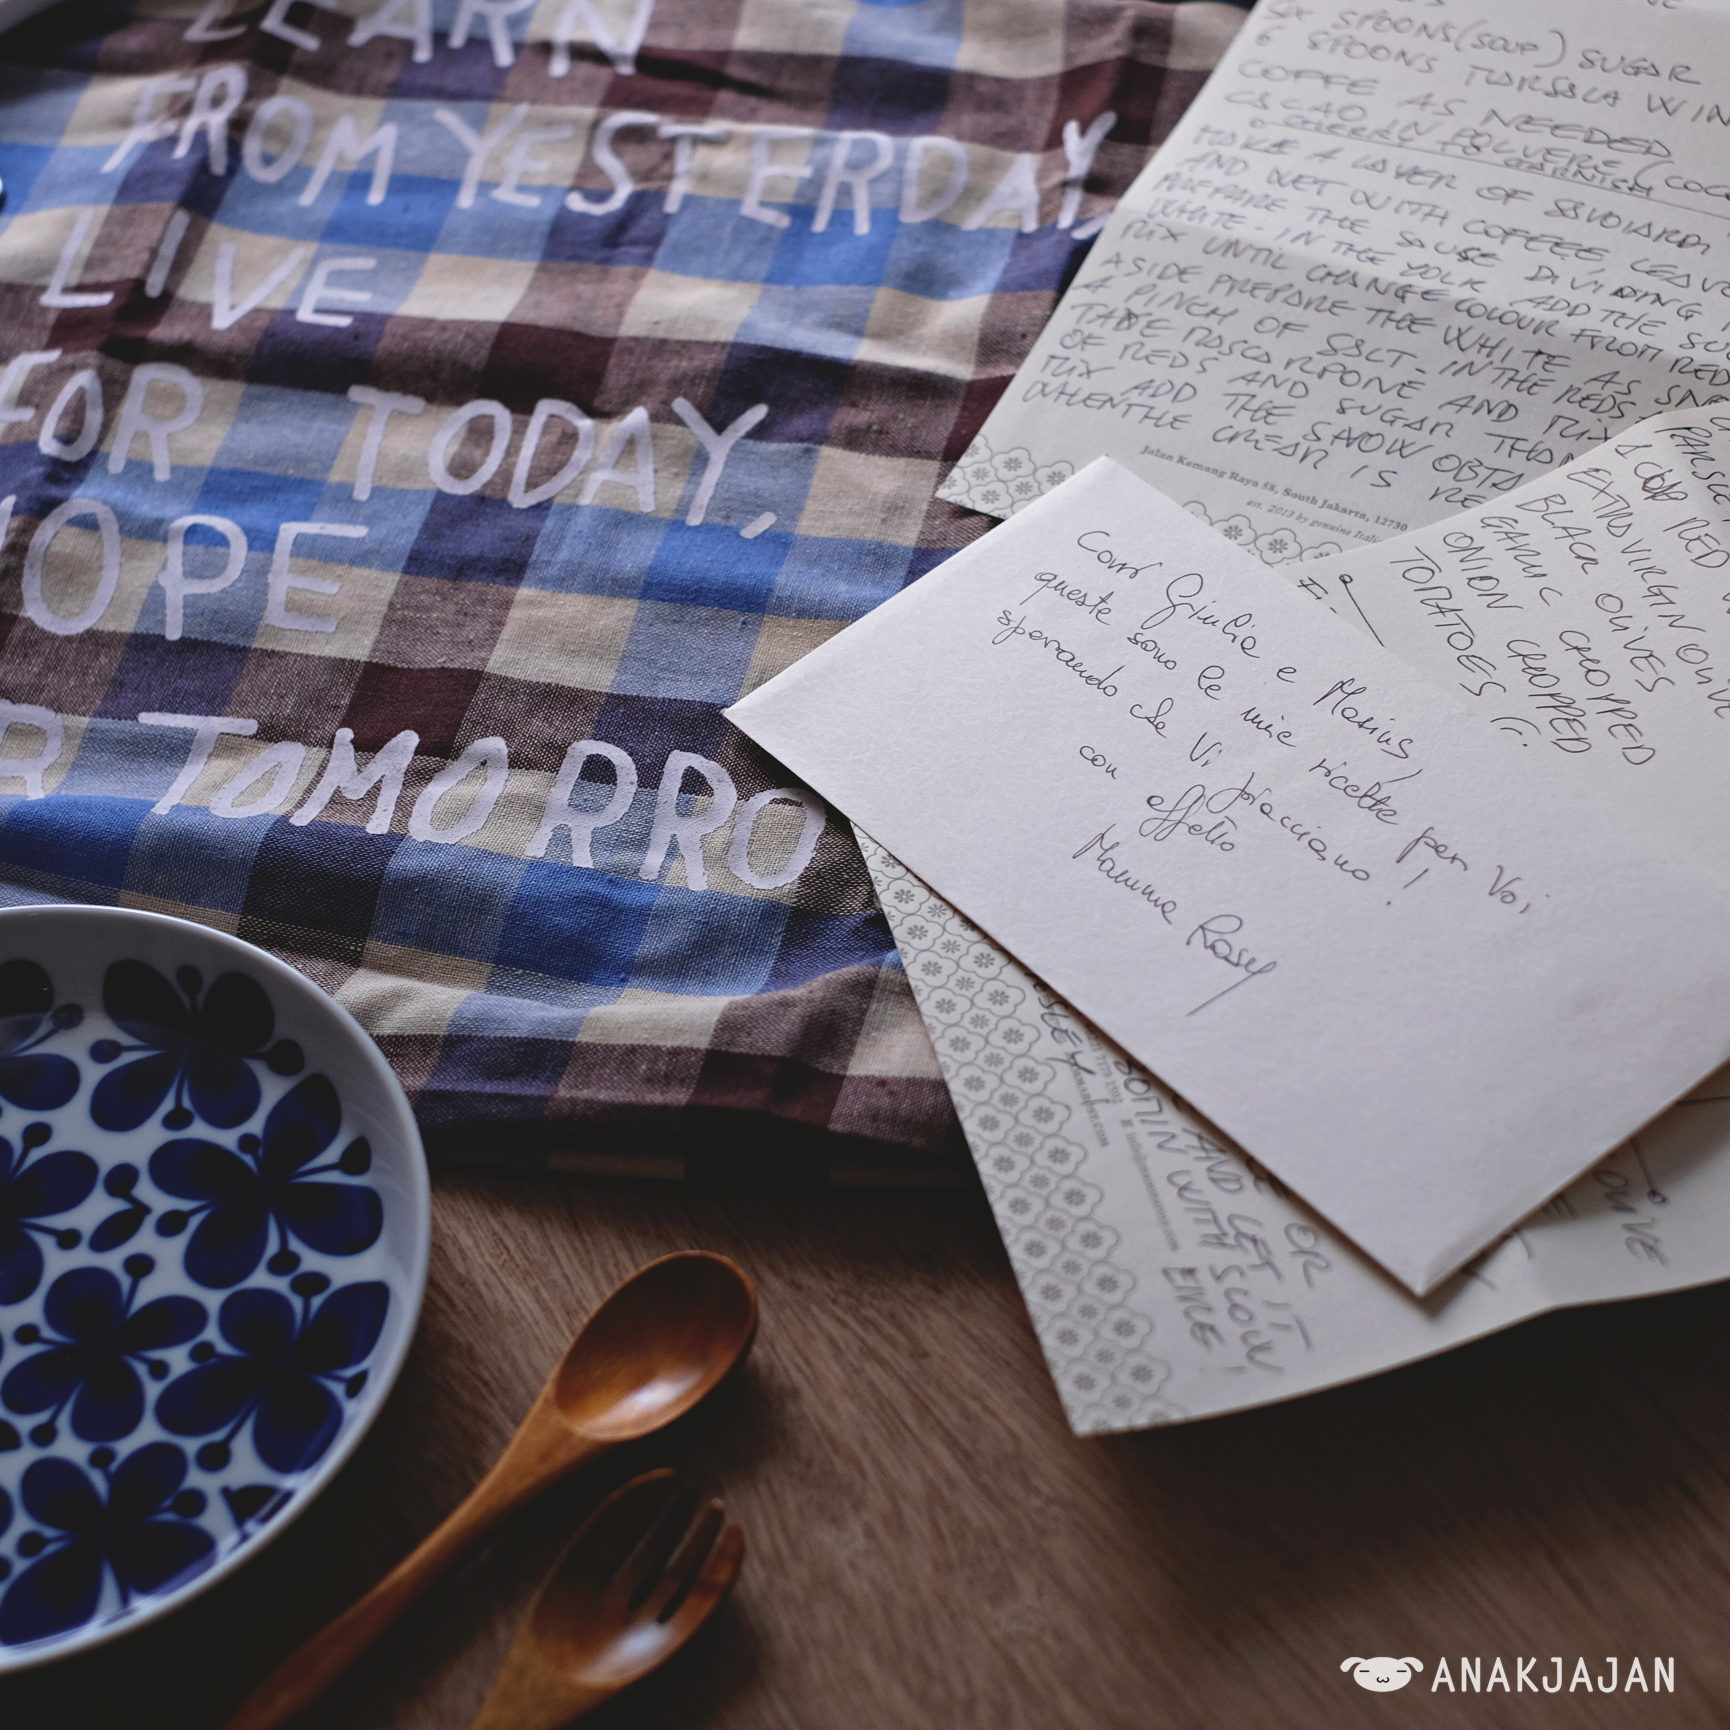 LEARN
FROM YESTERDAY,
LIVE
FOR TODAY,
HOPE
TOMORRO
SPOONS (SOUP) SUGAR
6 SPOONS MARSALA WIN
COFFE AS NEEDED
CACAO IN POLVERE (COC
CHERRY TO GARNISH
MAKE A LAYER OF SAVOIARDI
AND WET WITH COFFEE, LEAVE
PREPARE THE SAUSE DIVIDING
WHITE - IN THE YOLK ADD THE SU
MIX UNTIL CHANGE COLOUR FROM RED
ASIDE PREPARE THE WHITE AS SNO
A PINCH OF SALT - IN THE REDS
TAKE MASCARPONE AND MIX
OF REDS AND SUGAR THAN
MIX ADD THE SNOW OBTA
WHEN THE CREAM IS RE
Jalan Kemang Raya 58, South Jakarta, 12730
est. 2013 by genuine Itali
PARSLE
RED
EXTRA VIRGIN OLIVE
BLACK OLIVES
GARLIC CHOPPED
ONION CHOPPED
TOMATOES
Cari Giulia e Marius,
queste sono le mie ricette per Voi,
sperando che Vi piacciano!
con affetto
Mamma Rosy
OR
AND LET IT
50 MIN WITH SLOW
FIRE!
OLIVE
ANAKJAJAN